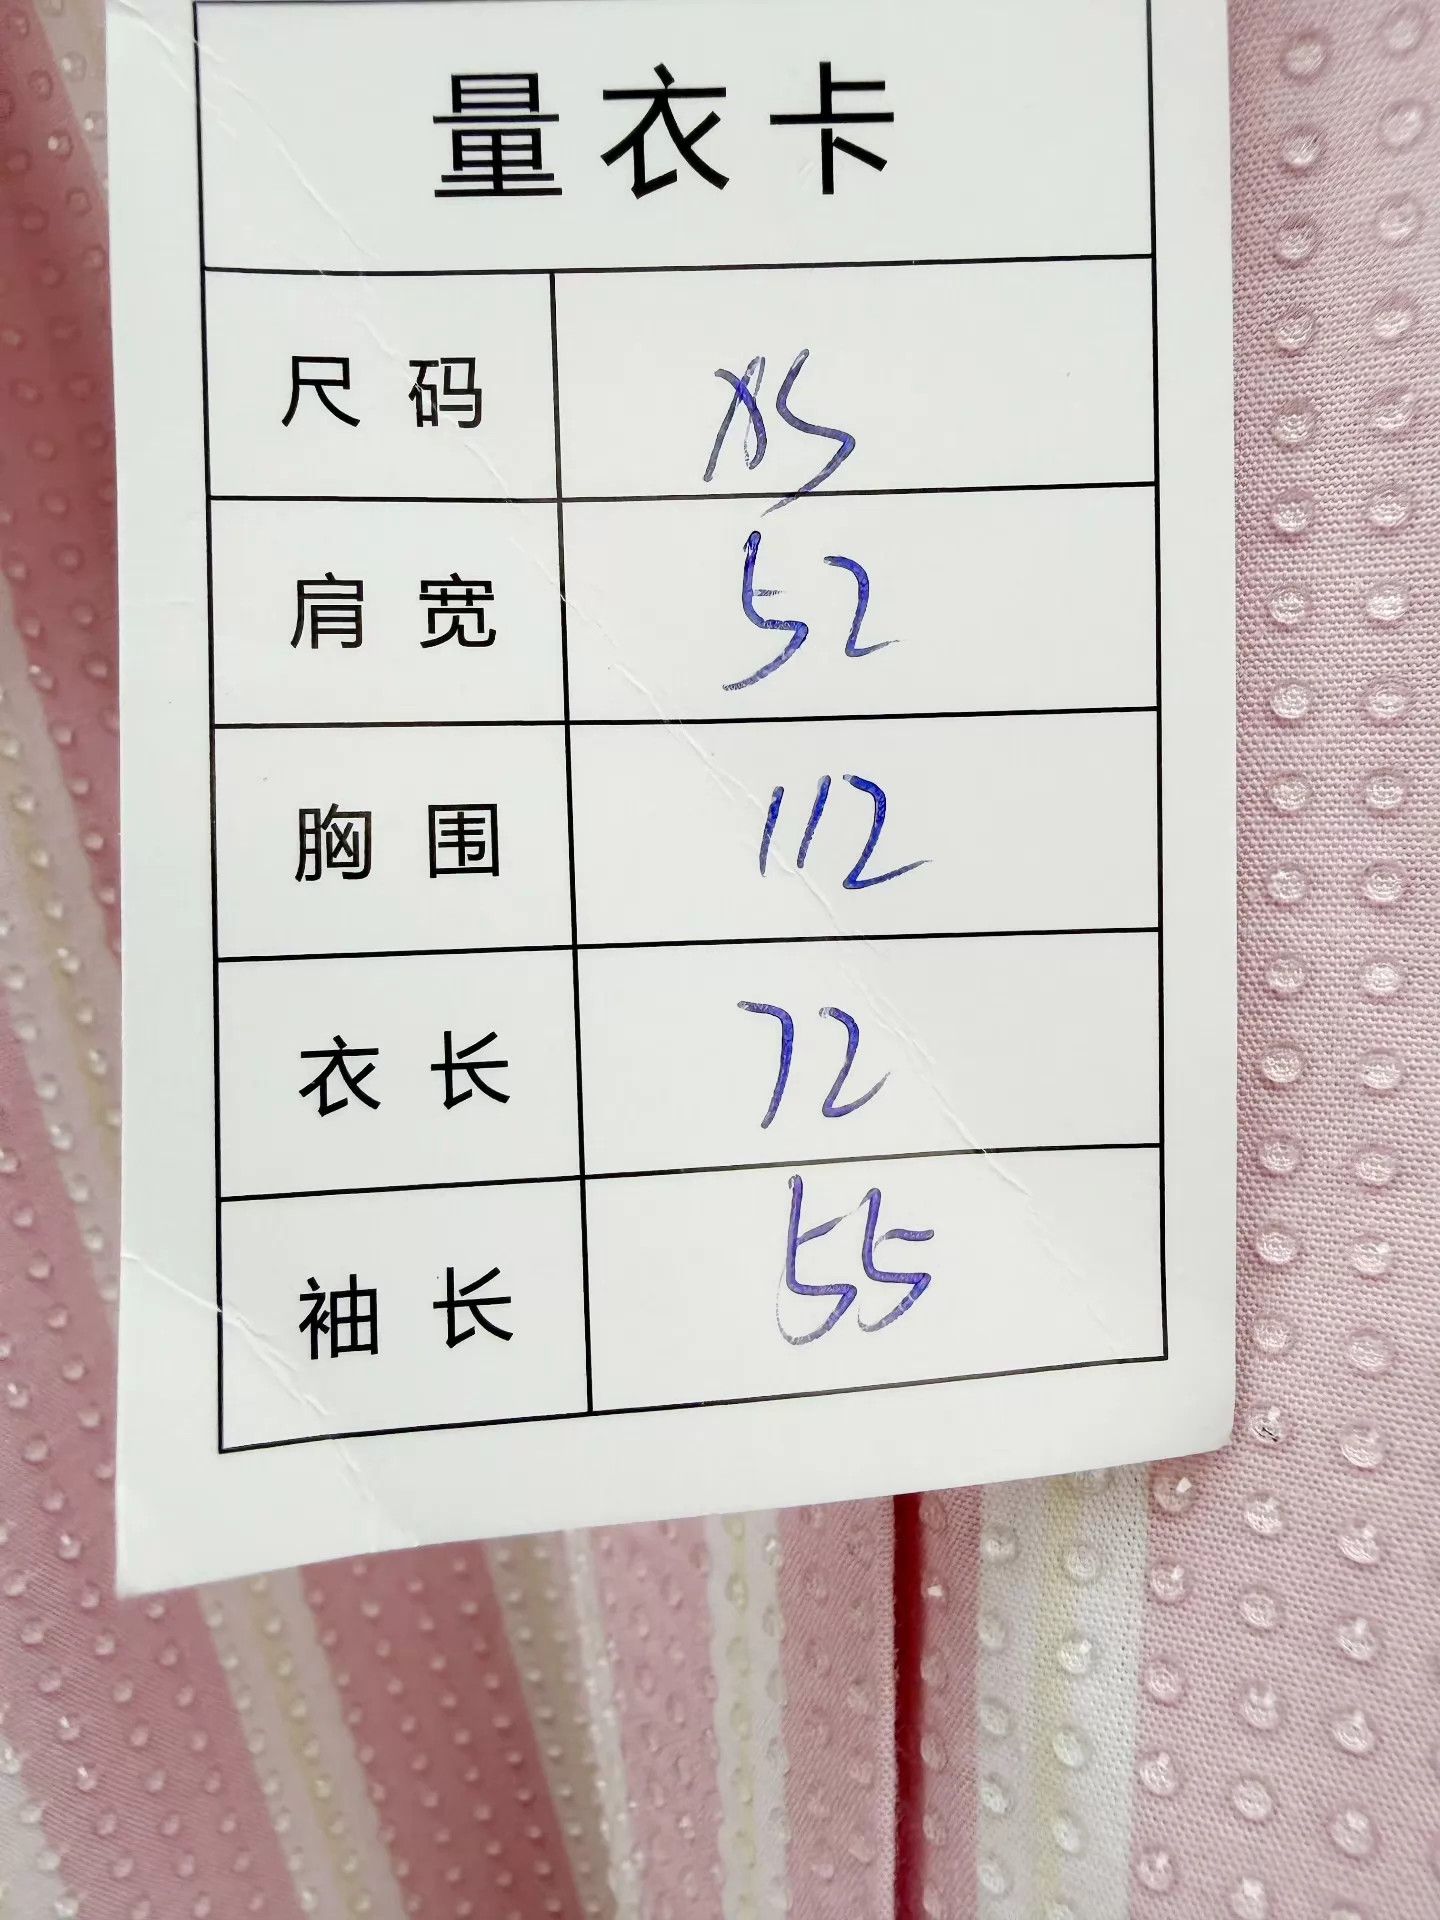 量衣卡
尺码 XS
肩宽 52
胸围 112
衣长 72
袖长 55